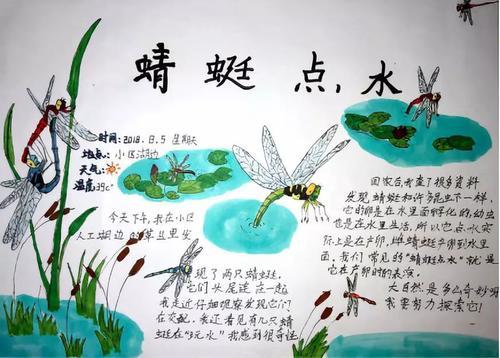 蜻蜓点水
时间：2018.8.5 星期天
地点：小区湖边
天气：
温度：39℃
今天下午，我在小区
人工湖边的草丛里发
现了两只蜻蜓，
它们头尾连在一起
我走近仔细观察发现它们
在交配，我还看见有几只蜻
蜓在“点水”我感到很奇怪
回家后我查了很多资料
发现蜻蜓和许多昆虫不一样，
它的卵是在水里面孵化的，幼虫
也是在水里生活，所以它点水实
际上是在产卵，雌蜻蜓产卵到水里
面，我们常见的“蜻蜓点水”就是
它在产卵时的表演。
大自然是多么奇妙啊
我要努力探索它！